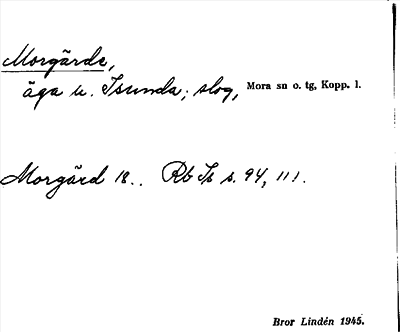 Morgärde,
äga u. Isunda; slog, Mora sn o. tg, Kopp. l.
Morgärd 18.. Rb Is s. 94, 111.
Bror Lindén 1945.